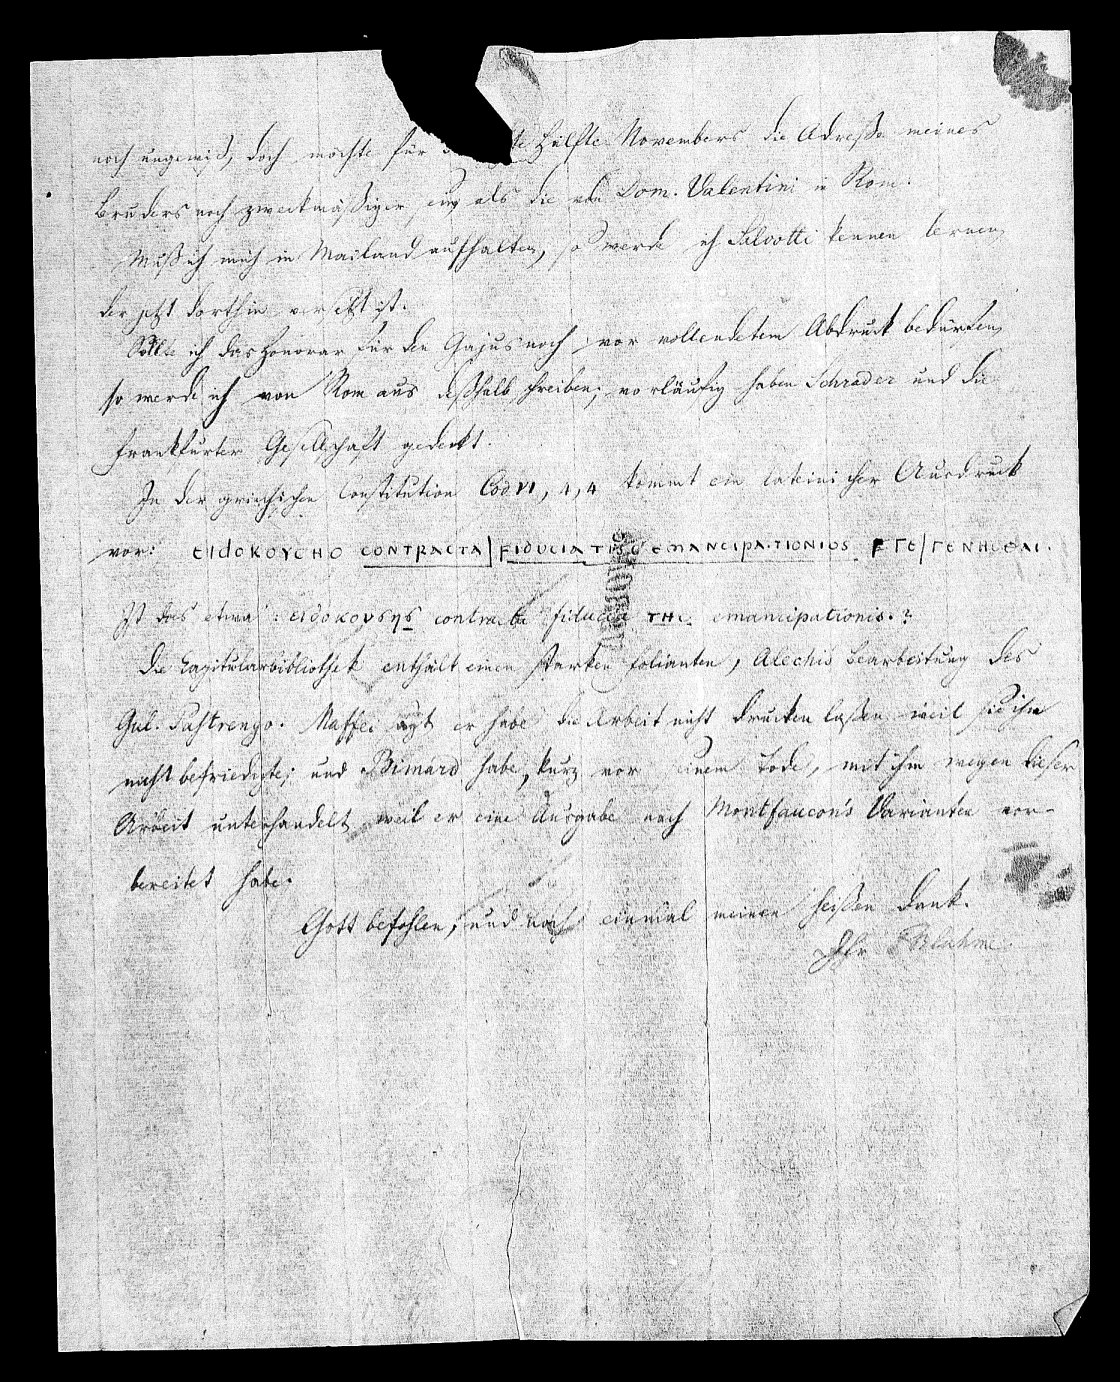 noch ungewiß, doch möchte für die Hälfte Novembers die Adresse meines
Bruders noch zweckmäßiger sein als die von Dom. Valentini in Rom.
Muß ich mich in Mailand aufhalten, so werde ich Salvotti kennen lernen,
der jetzt dorthin versetzt ist.
Sollte ich das Honorar für den Gajus noch vor vollendetem Abdruck bedürfen,
so werde ich von Rom aus deßhalb schreiben; vorläufig haben Schrader und die
Frankfurter Gesellschaft gedeckt.
In der griechischen Constitution Cod VI, 4, 4 kommt ein lateinischer Ausdruck
vor: ЄIdOKOYCHO CONTRACTA/FIDUCIA TUS emANCIPATIONIUS ЄΓЄ/ΓЄNHCΘAI.
Ist das etwa: ειδοκουσης contracta fiducia THC emancipationis.?
Die Capitularbibliothek enthält einen starken Folianten, Alechis Bearbeitung des
Gul. Pastrengo. Maffei sagt er habe die Arbeit nicht drucken laßen weil sie ihn
nicht befriedigte; und Bimard habe, kurz vor seinem Tode, mit ihm wegen dieser
Arbeit unterhandelt, weil er eine Ausgabe nach Montfaucon's Varianten vor-
bereitet habe.
Gott befohlen, und noch einmal meinen heißen Dank.
Ihr Bluhme.